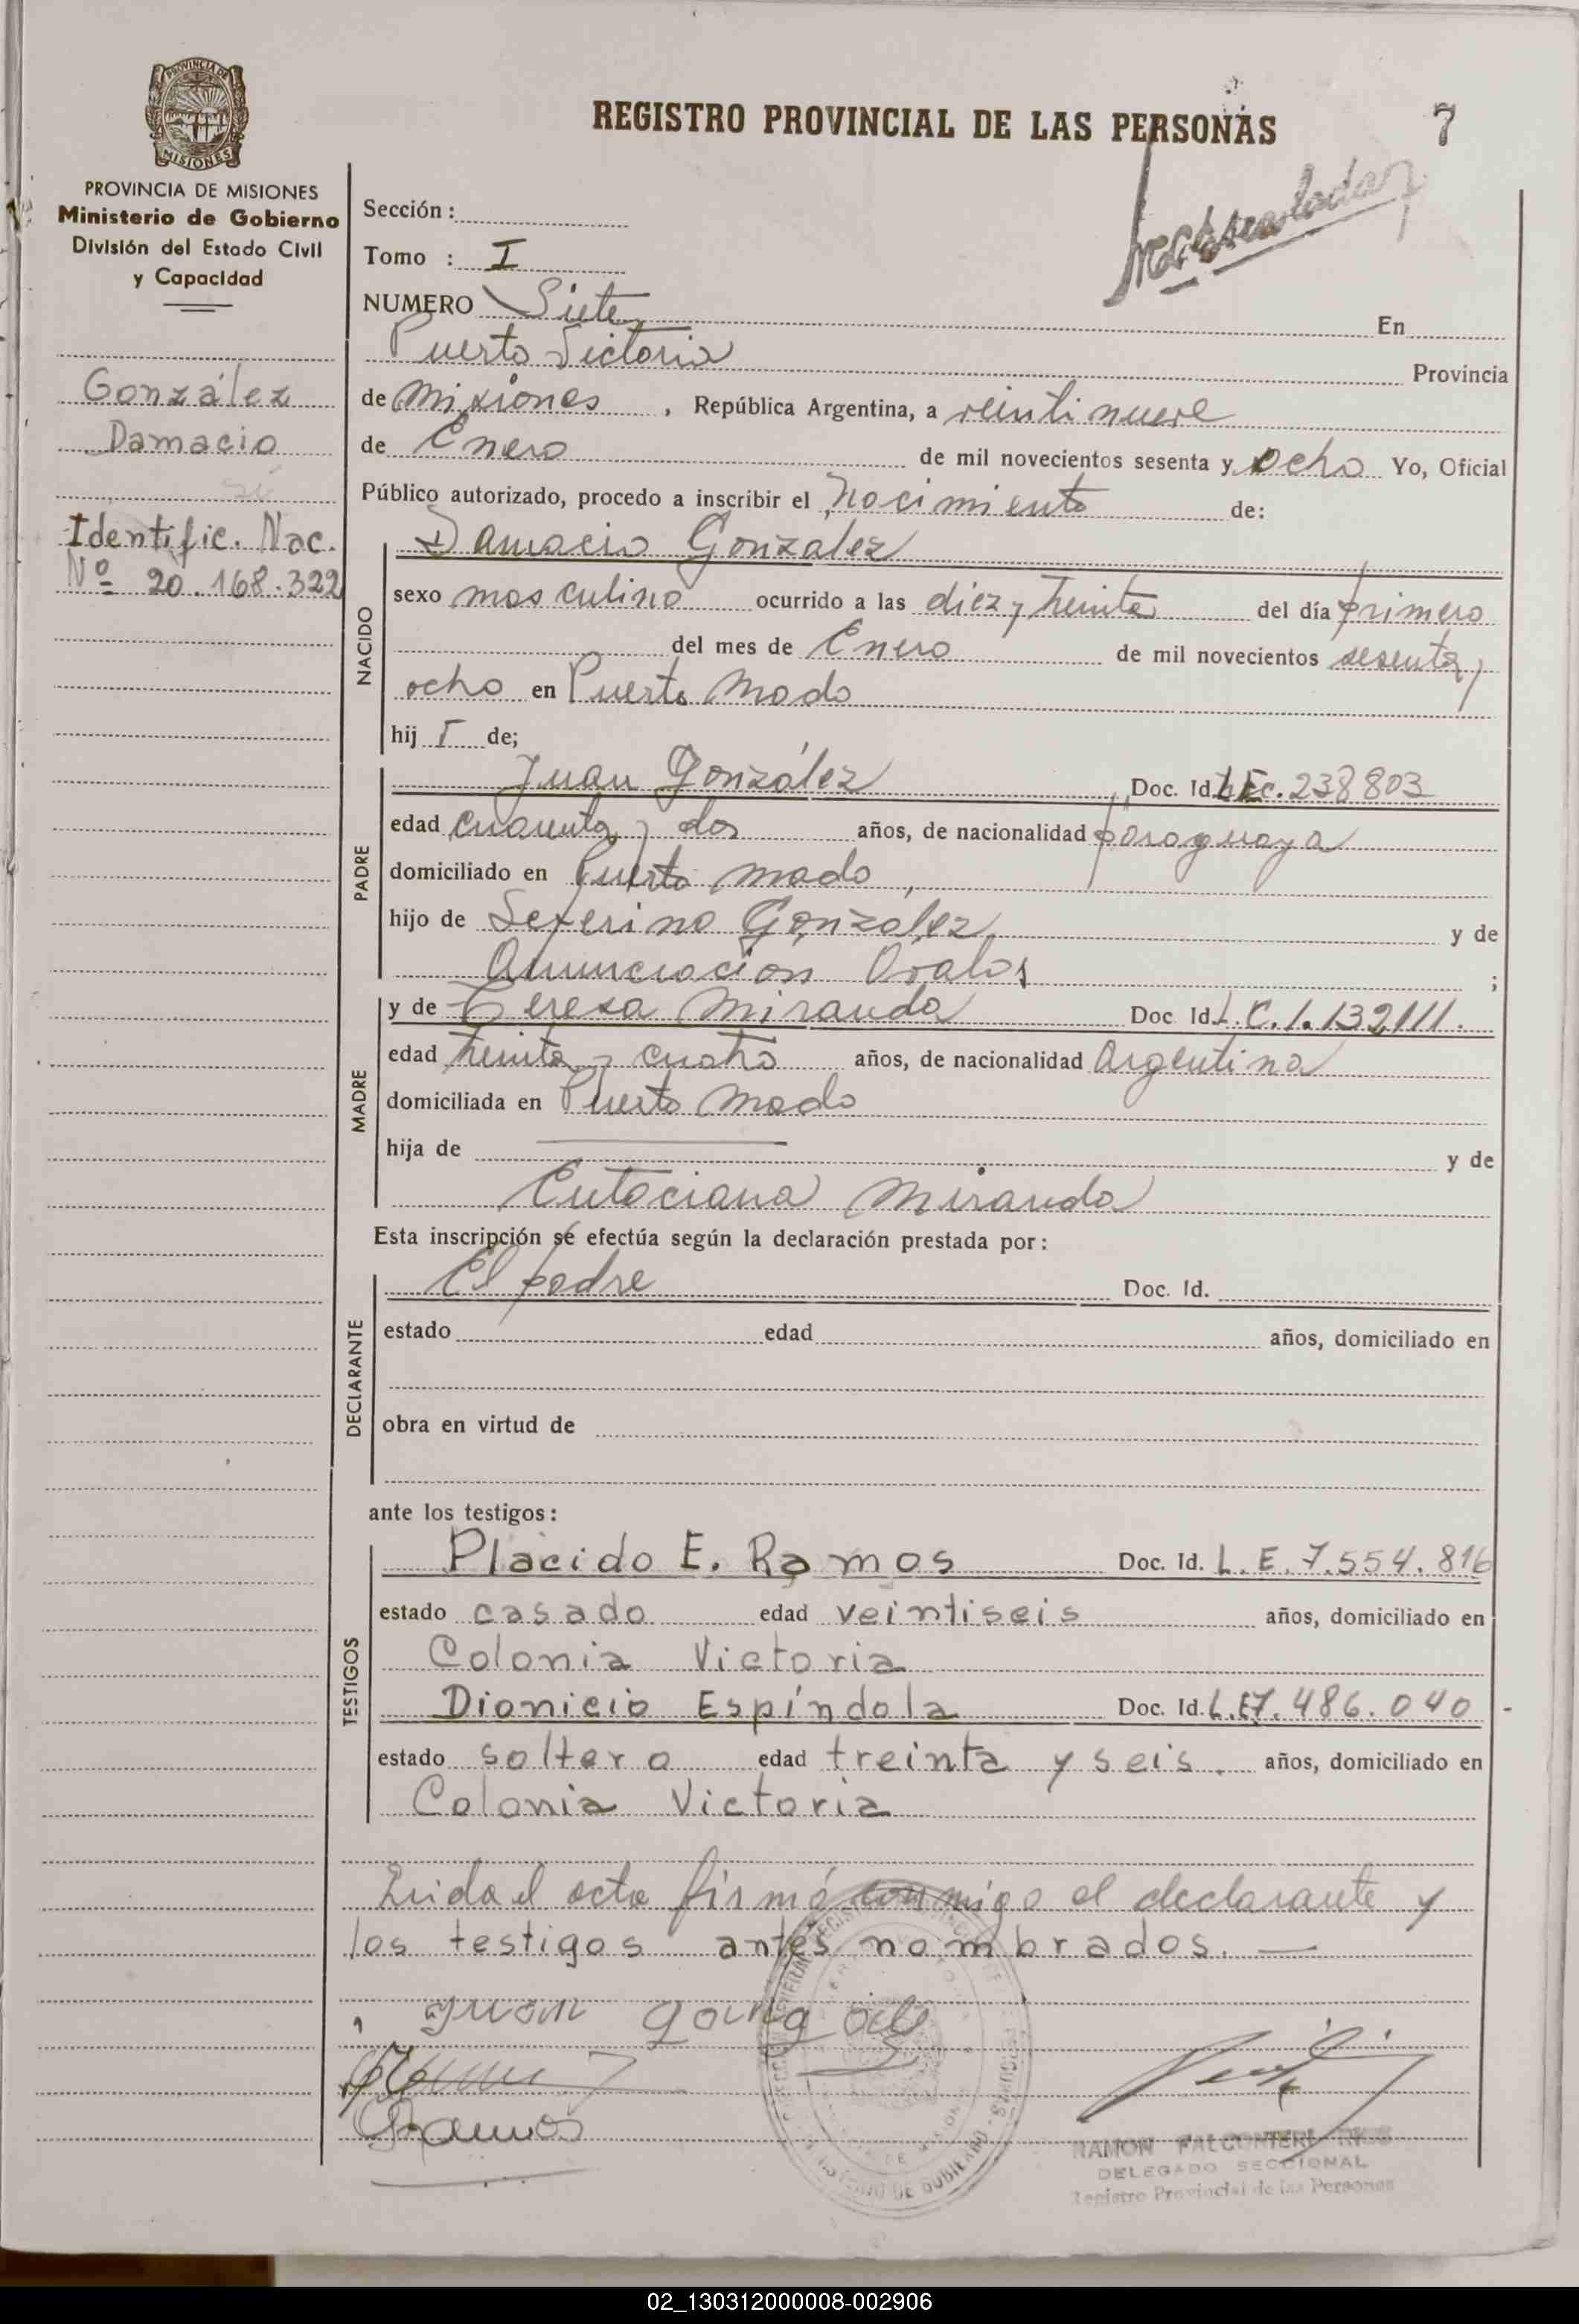 REGISTRO PROVINCIAL DE LAS PERSONAS
7
PROVINCIA DE MISIONES
PROVINCIA DE MISIONES
Ministerio de Gobierno
División del Estado Civil
y Capacidad
González
Damacio
Identific. Nac.
Nº 20.168.322
Sección :
Tomo : I
NUMERO Siete En
Puerto Victoria Provincia
de Misiones , República Argentina, a veintinueve
de Enero de mil novecientos sesenta y ocho Yo, Oficial
Público autorizado, procedo a inscribir el Nacimiento de:
NACIDO
Damacio Gonzalez
sexo masculino ocurrido a las diez y treinta del día primero
del mes de Enero de mil novecientos sesenta y
ocho en Puerto Mado
hij o de;
PADRE
Juan González Doc. Id. 238803
edad cuarenta y dos años, de nacionalidad paraguaya
domiciliado en Puerto Mado,
hijo de Seferino González y de
Anunciacion Ovalos ;
MADRE
y de Teresa Miranda Doc Id L.C.1.132111.
edad treinta y cuatro años, de nacionalidad Argentina
domiciliada en Puerto Mado
hija de y de
Eutaciana Miranda
Esta inscripción sé efectúa según la declaración prestada por:
DECLARANTE
El padre Doc. Id.
estado edad años, domiciliado en
obra en virtud de
ante los testigos:
TESTIGOS
Placido E. Ramos Doc. Id. L.E.7.554.816
estado casado edad veintiseis años, domiciliado en
Colonia Victoria
Dionicio Espíndola Doc. Id. L.E7.486.040
estado soltero edad treinta y seis. años, domiciliado en
Colonia Victoria
Leida el acta firmó conmigo el declarante y
los testigos antes nombrados. —
Juan
Ramos
RAMON FALCONIERI
DELEGADO SECCIONAL
Registro Provincial de las Personas
02_130312000008-002906